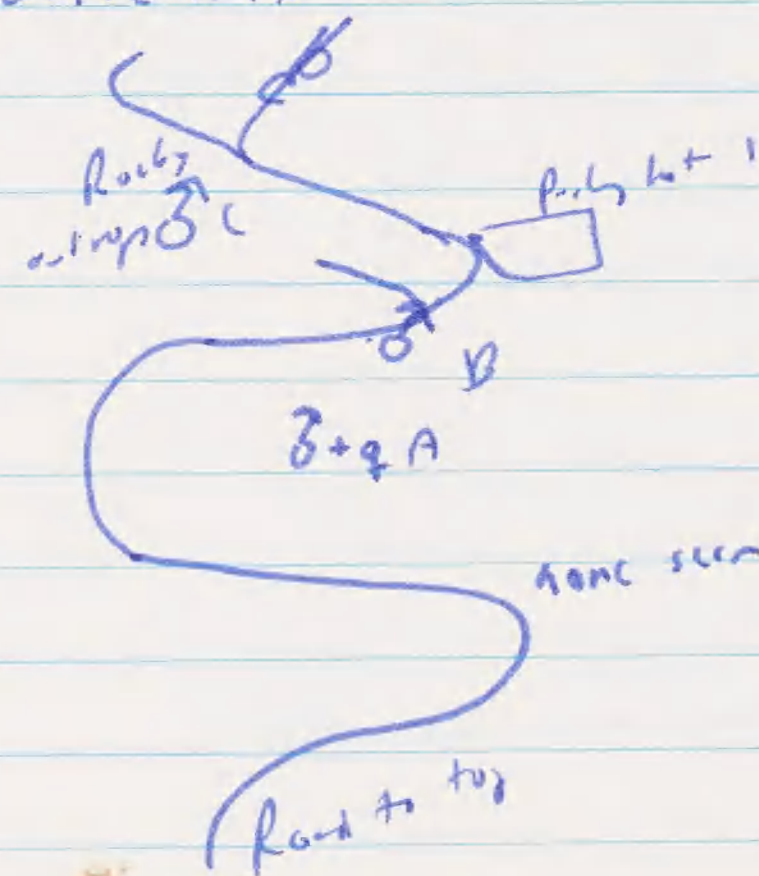 Rocky
outcrop ♂ C
Parking Lot 1
♂ B
♂ + ♀ A
none seen
Road to top